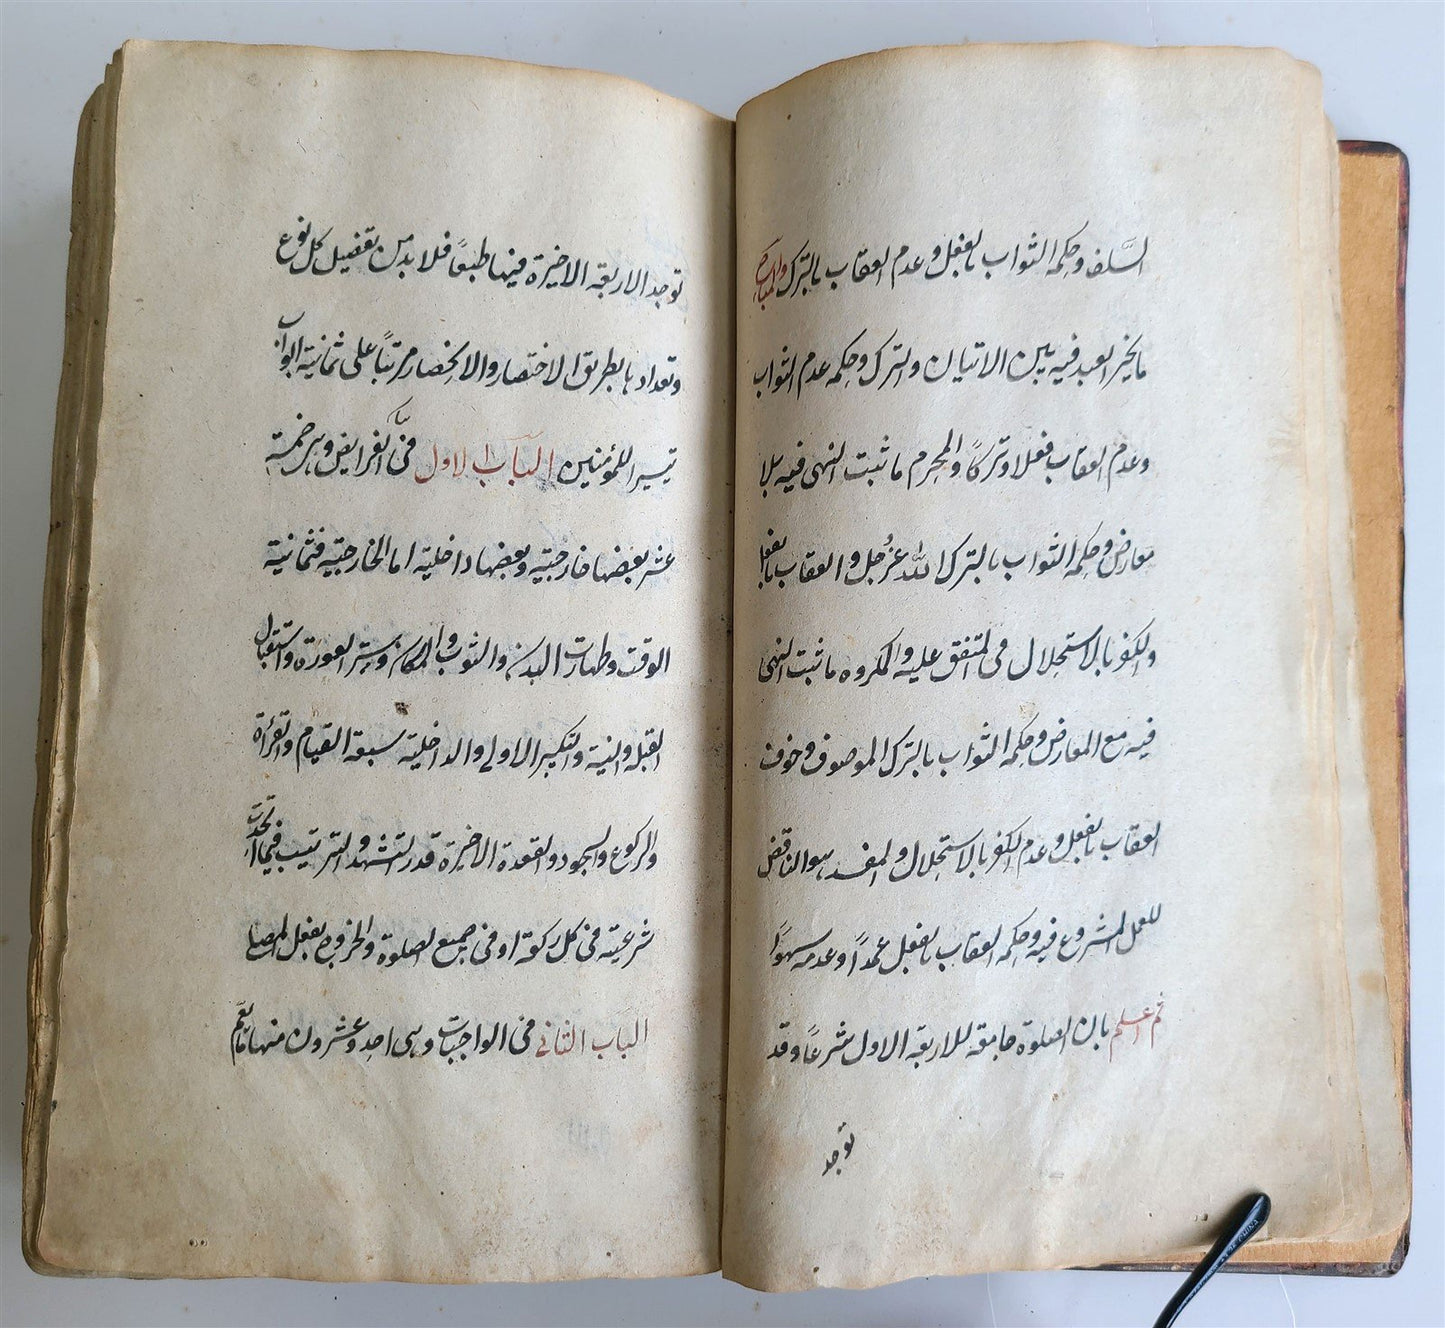 السلف وحكمه الثواب بالفعل وعدم العقاب بالترك والمباح
ما يخير العبد فيه بين الاتيان والترك وحكمه عدم الثواب
وعدم العقاب فعلا وتركا والمحرم ما ثبت النهى فيه بلا
معارض وحكمه الثواب بالترك لله عز وجل والعقاب بالفعل
والكفر بالاستحلال فى المتفق عليه والمكروه ما ثبت النهى
فيه مع المعارض وحكمه الثواب بالترك الموصوف وخوف
العقاب بالفعل وعدم الكفر بالاستحلال والمفسد هو الناقض
للعمل المشروع فيه وحكمه العقاب بالفعل عمدًا وعدمه سهوًا
ثم اعلم بان الصلوة جامعة للاربعة الاول شرعًا وقد
توجد
توجد الاربعة الاخيرة فيها طبعًا فلا بد من تفصيل كل نوع
وتعدادها بطريق الاختصار والانحصار مرتبًا على ثمانية ابواب
تيسيرا للمؤمنين الباب الاول فى الفرايض وهى خمسة
عشر بعضها خارجية وبعضها داخلية اما الخارجية فثمانية
الوقت وطهارت البدن والثوب والمكان وستر العورة واستقبال
القبلة والنية والتكبير الاولى والداخلية سبعة القيام والقرأة
والركوع والسجود والقعدة الاخيرة قدر التشهد والترتيب فيما اتحدت
شرعيته فى كل ركعة او فى جميع الصلوة والخروج بفعل المصلى
الباب الثانى فى الواجبات وهى احد وعشرون منها ما يعم